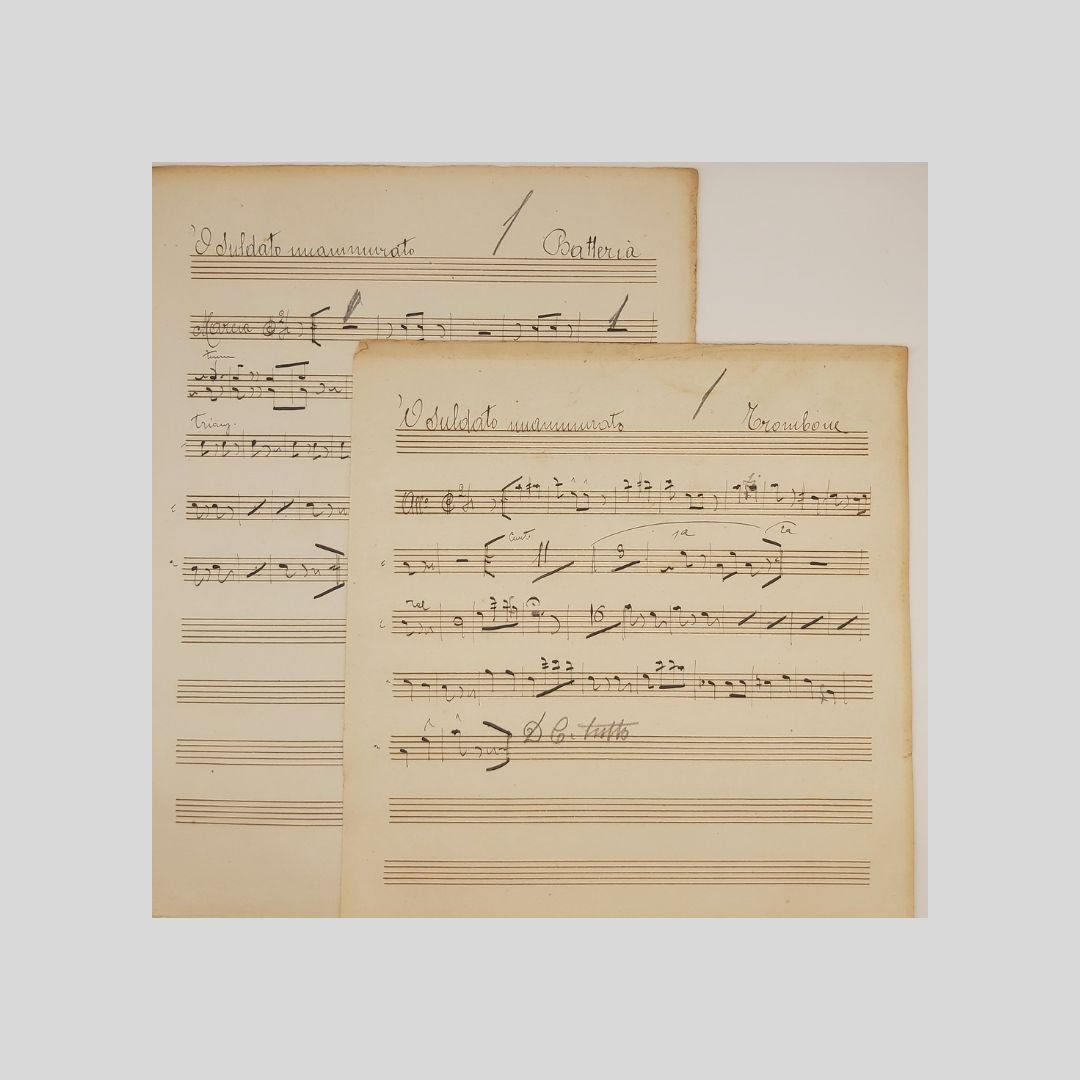 'O suldato nnammurato 1 Batteria
Marcia
1
triang.
'O suldato nnammurato 1 Trombone
All°
Cant
11 8 1a 2a
rel
16
D C. tutto